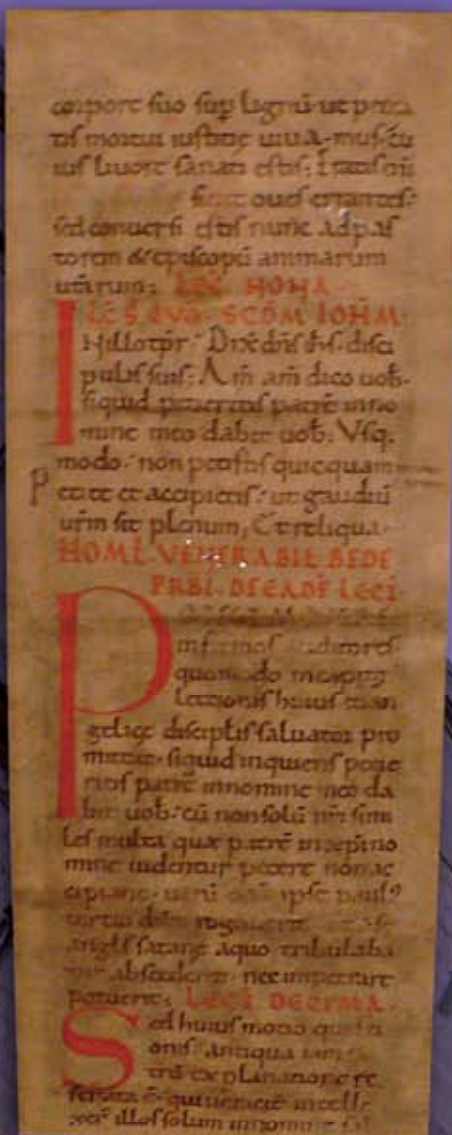 corpore suo sup lignũ ut pecca
tis mortui iustitie uiua-mus. Cu
ius liuore sanati estis: Eratis eñ
sicut oues errantes:
sed conuersi estis nunc ad pas
torem & episcopũ animarum
uũrarum: LEC̃ NONA
LEC̃ S EVG̃ SCDM IOHM
INillo tp̃r Dixẽ dñs ihs disci
pulis suis: Am am dico uob.
siquid petieritis patrẽ inno
mine meo dabit uob: Vsq.
modo non petistis quicquam
Petite et accipietis: ut gaudiũ
ur̃m sit plenum, Et reliqua
HOML VENERABIL BEDE
PRBI DE EADE LECI
P
infirmos auditores
quomodo
lectionis huius euan
gelicę discipl̃is saluator pro
mittit siquid inquiens petie
ritis patrẽ innomine meo da
bit uob: cũ non solũ nr̃i simi
les multa quae patrẽ in xpi no
mine uidentur petere non ac
cipiant uerũ ipse paul9
tertio dñm rogauerit
angls satane aquo tribulaba
tur abscederet nec impetrare
potuerit: LECI DECIMA
Sed huius modo questi
onis antiqua iam
explanatione re
serata ẽ qui ueraciẽ intelle
xit illos solum innomine